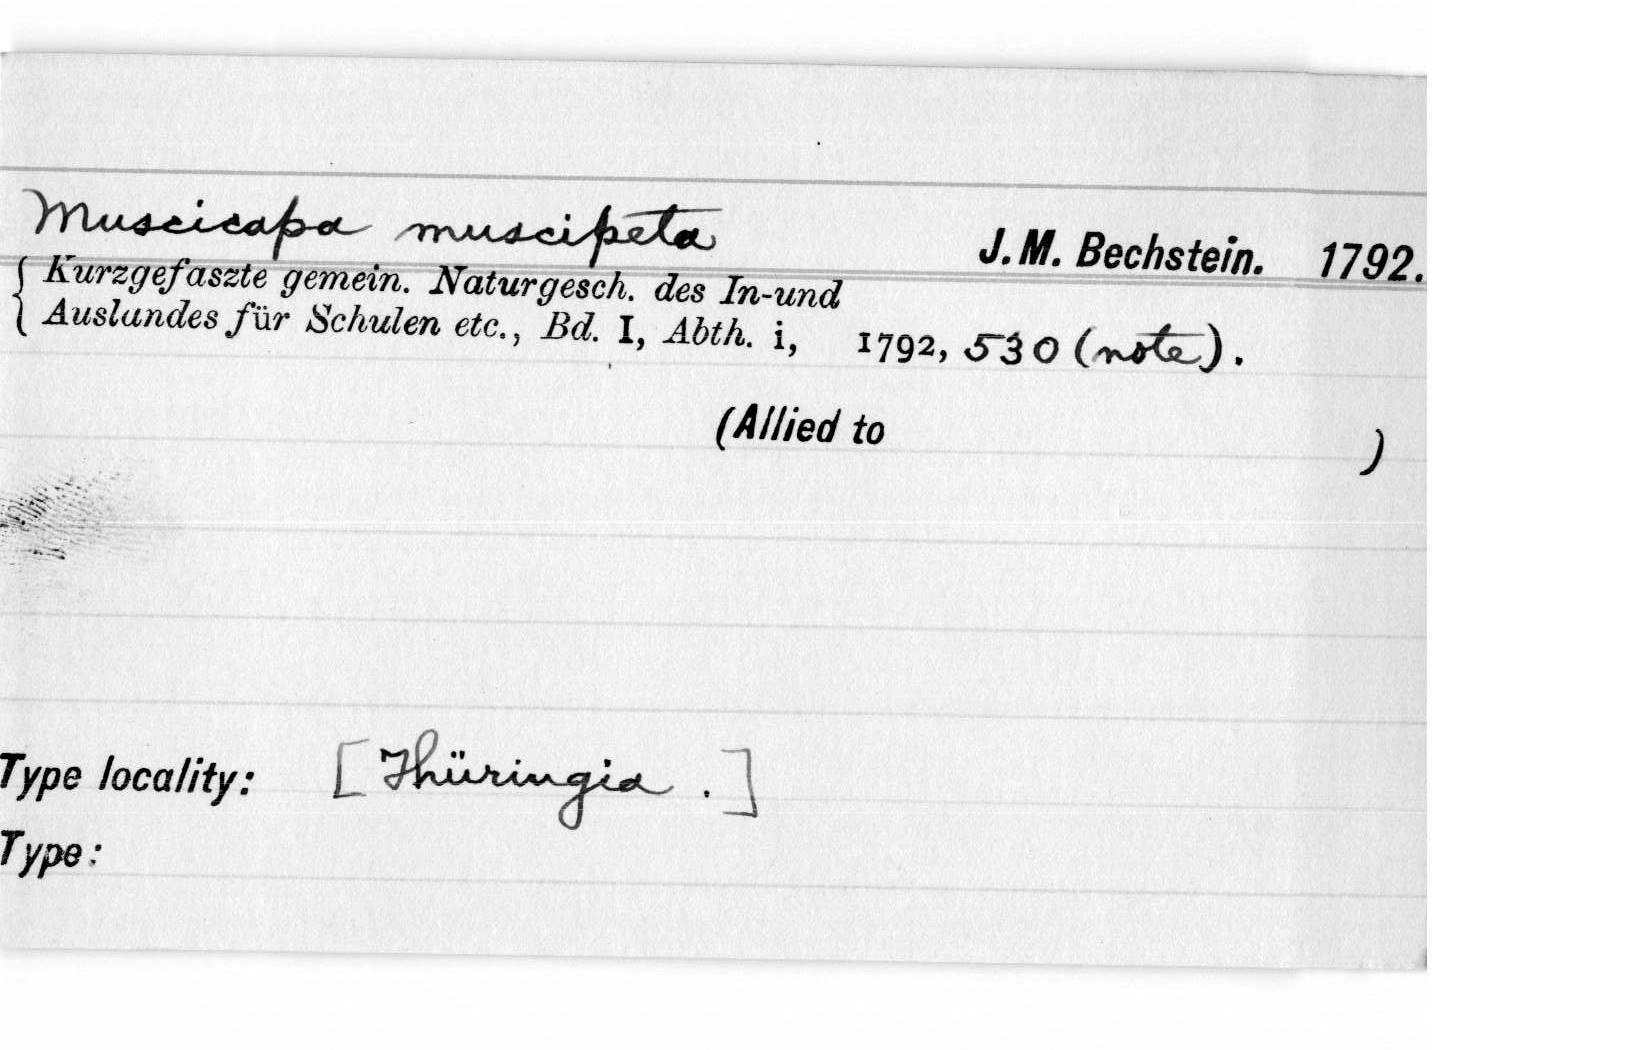 Muscicapa muscipeta J. M. Bechstein. 1792.
Kurzgefaszte gemein. Naturgesch. des In-und
Auslandes für Schulen etc., Bd. I, Abth. i, 1792, 530 (note).
(Allied to )
Type locality: [Thüringia .]
Type: